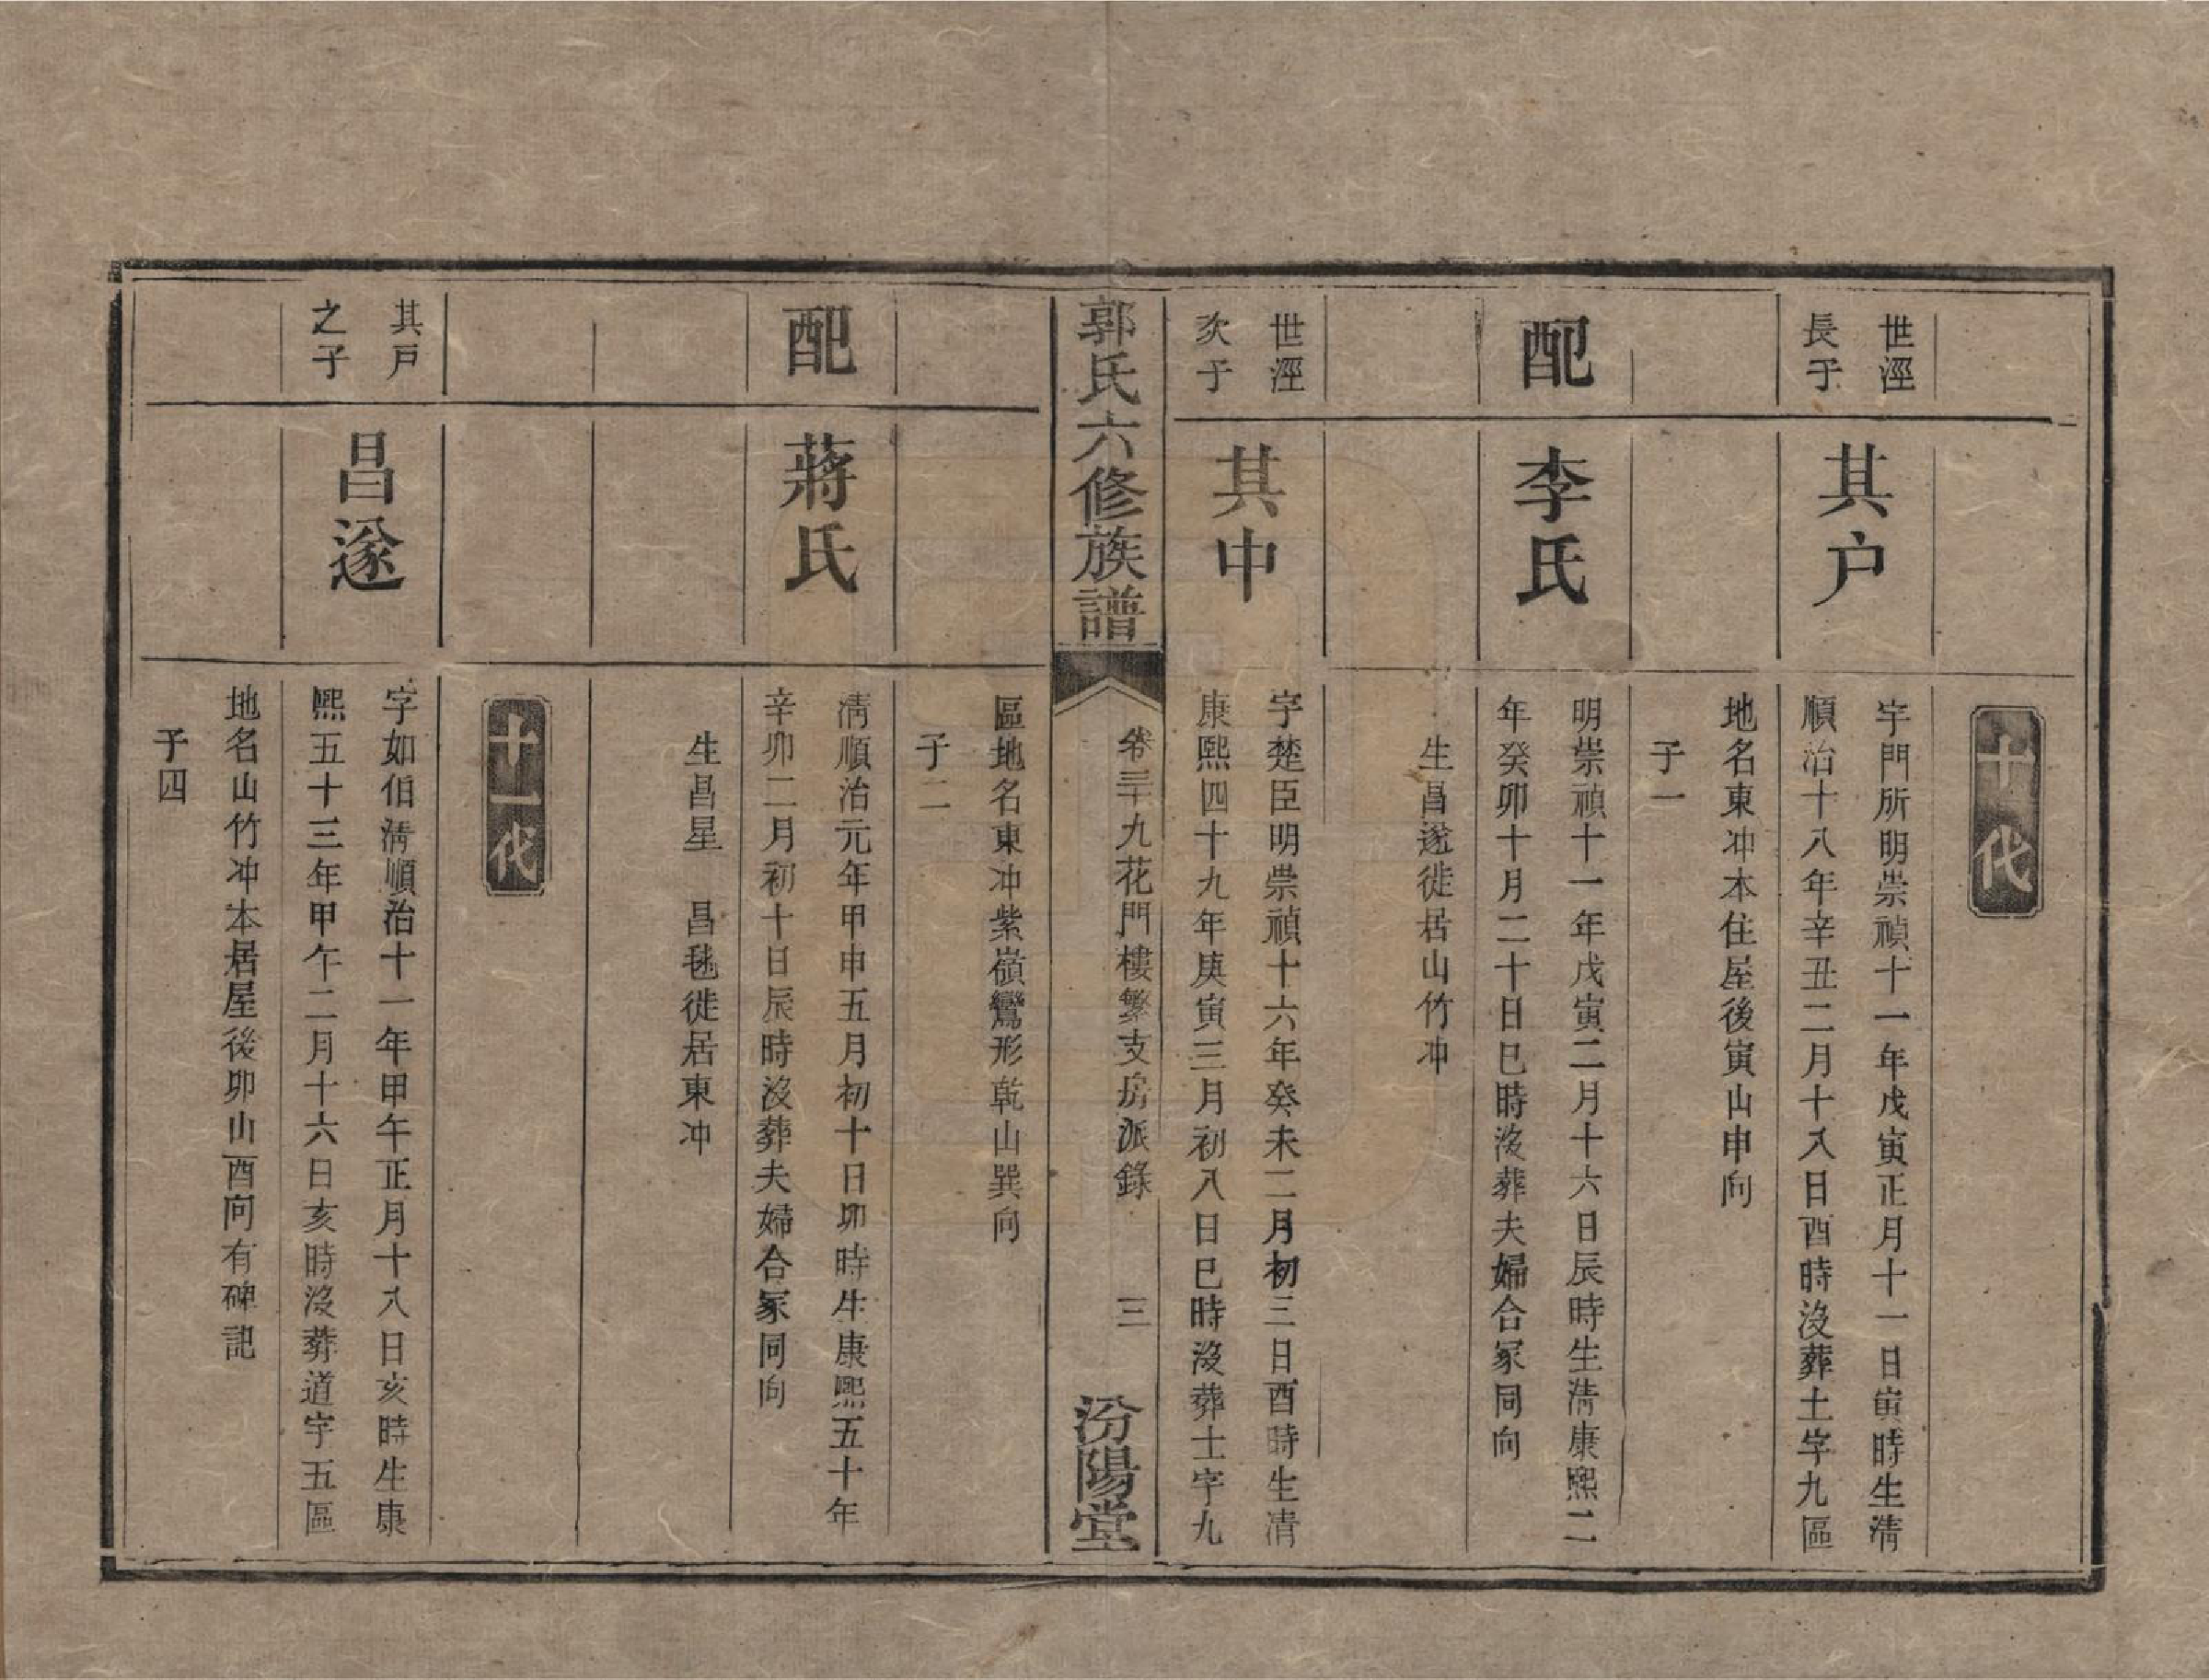 十代
世涇
長子
其户
字門所明崇禎十一年戊寅正月十一日寅時生清
順治十八年辛丑二月十八日酉時沒葬土字九區
地名東冲本住屋後寅山申向
子一
配
李氏
明崇禎十一年戊寅二月十六日辰時生清康熙二
年癸卯十月二十日巳時沒葬夫婦合冢同向
生昌遂徙居山竹冲
世涇
次子
其中
字楚臣明崇禎十六年癸未二月初三日酉時生清
康熙四十九年庚寅三月初八日巳時沒葬土字九
郭氏六修族譜
卷三十九花門樓繁支房派錄
三
汾陽堂
區地名東冲紫嶺鸞形乾山巽向
子二
配
蔣氏
清順治元年甲申五月初十日卯時生康熙五十年
辛卯二月初十日辰時沒葬夫婦合冢同向
生昌星 昌毯徙居東冲
十一代
其戸
之子
昌遂
字如伯清順治十一年甲午正月十八日亥時生康
熙五十三年甲午二月十六日亥時沒葬道字五區
地名山竹冲本居屋後卯山酉向有碑記
子四